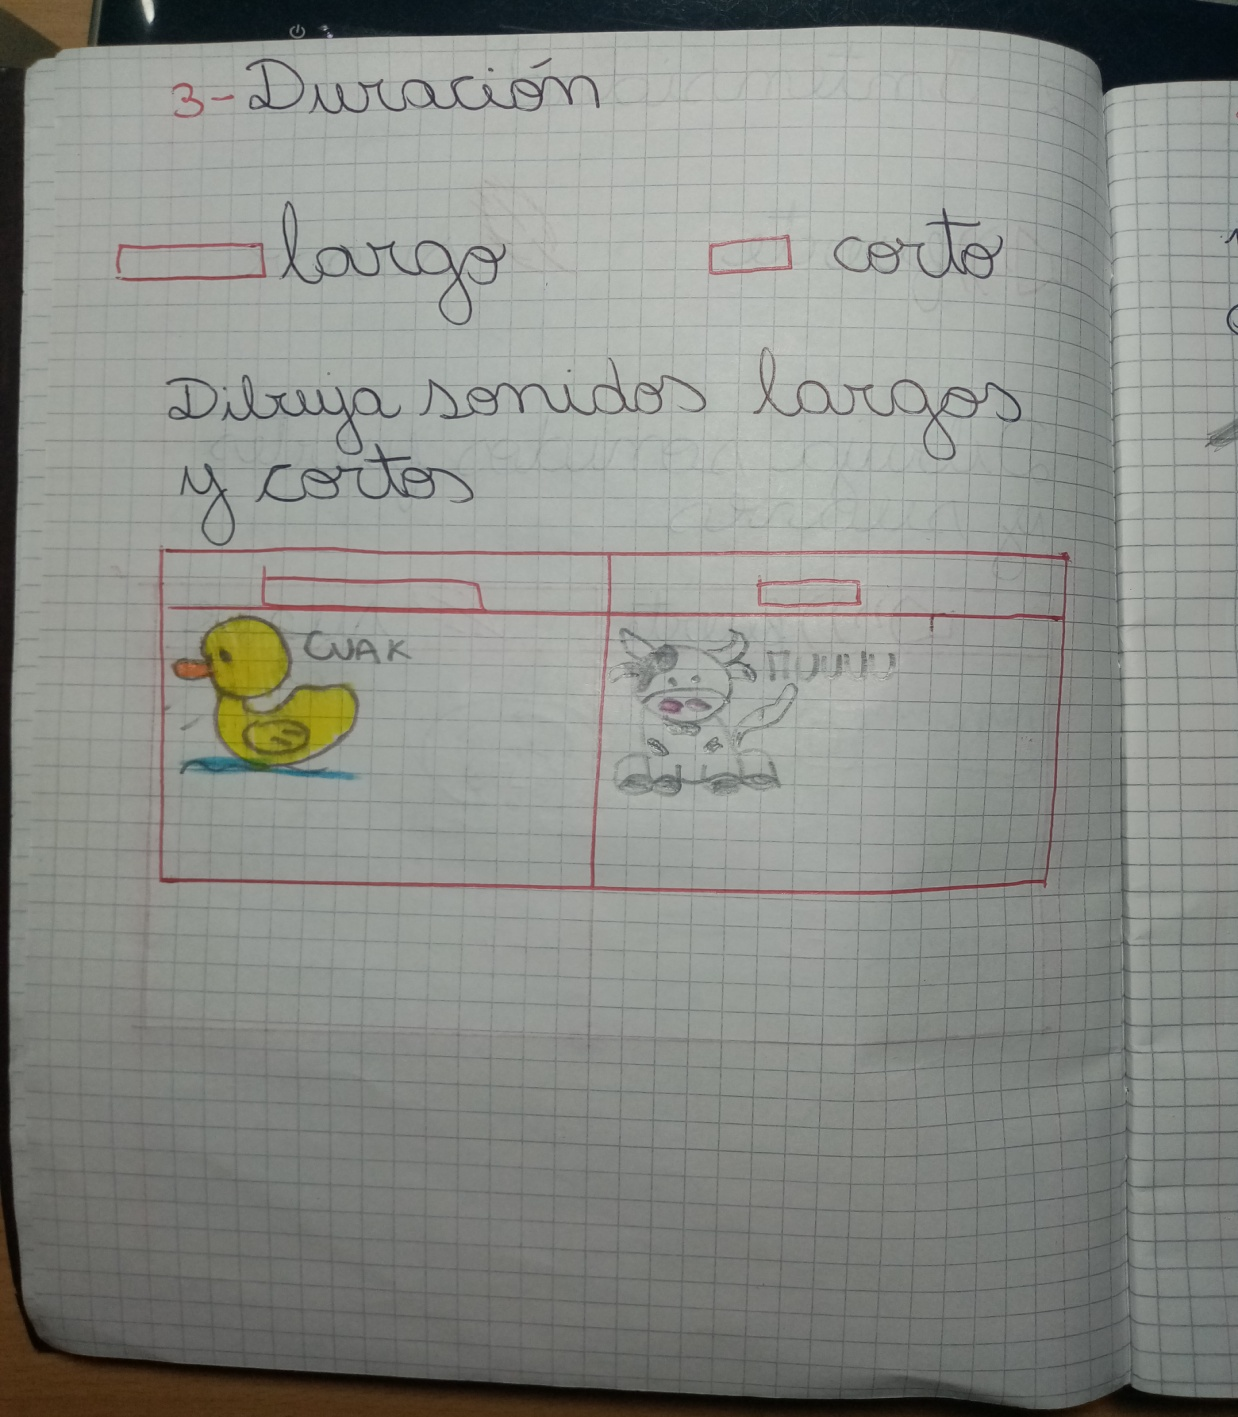 3-Duración
largo corto
Dibuja sonidos largos
y cortos
CUAK
MUUUU